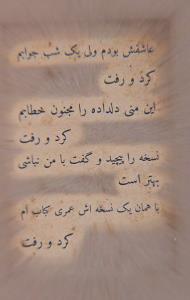 عاشقش بودم ولی یک شب جوابم
کرد و رفت
این منی دلداده را مجنون خطابم
کرد و رفت
نسخه را پیچید و گفت با من نباشی
بهتر است
با همان یک نسخه اش عمری کباب ام
کرد و رفت